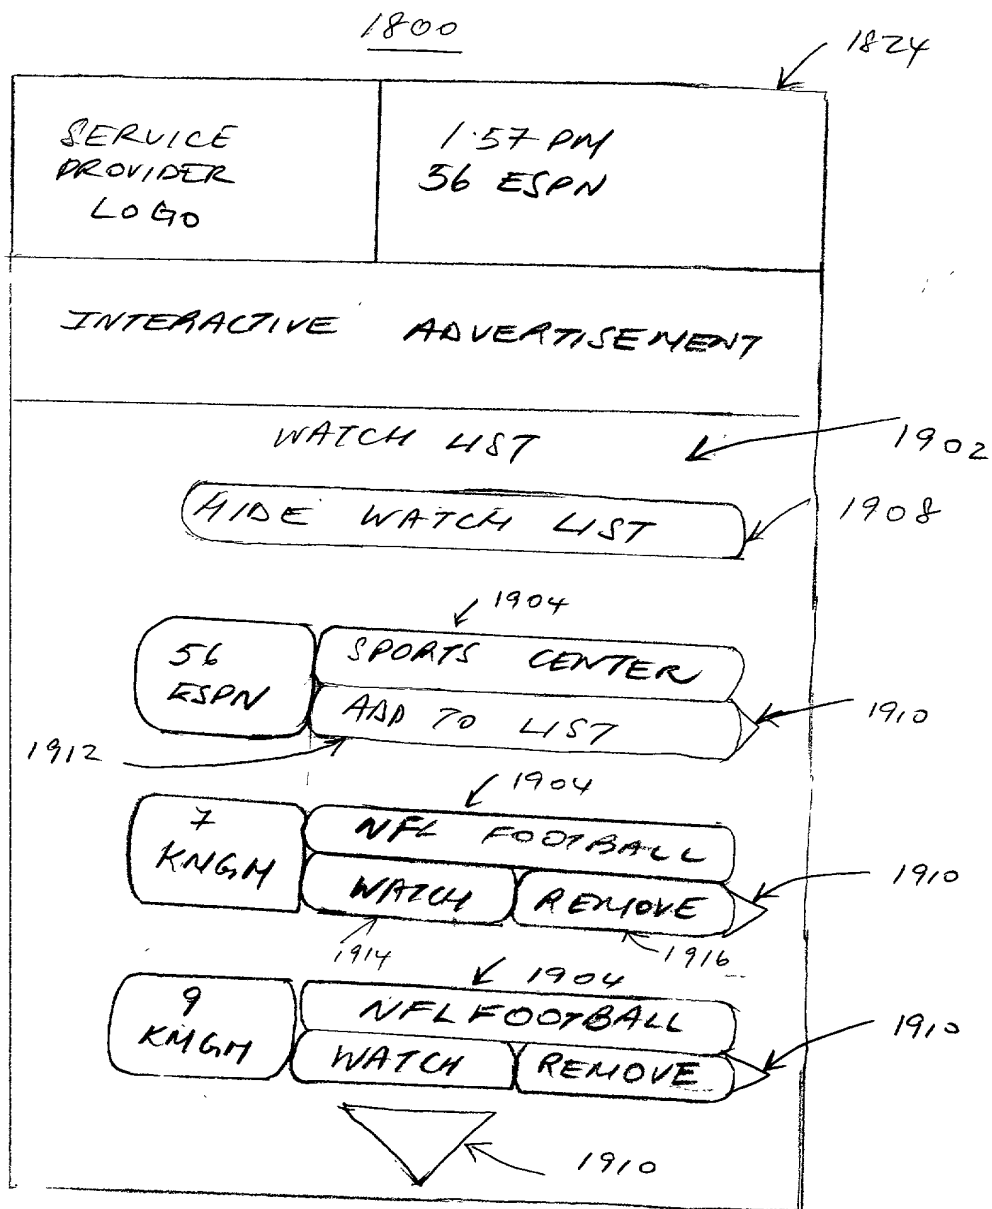 1800
1824
SERVICE
PROVIDER
LOGO
1:57 PM
56 ESPN
INTERACTIVE ADVERTISEMENT
WATCH LIST
1902
HIDE WATCH LIST
1908
1904
56
ESPN
SPORTS CENTER
ADD TO LIST
1910
1912
1904
7
KNGM
NFL FOOTBALL
WATCH
REMOVE
1910
1914
1916
1904
9
KMGM
NFL FOOTBALL
WATCH
REMOVE
1910
1910